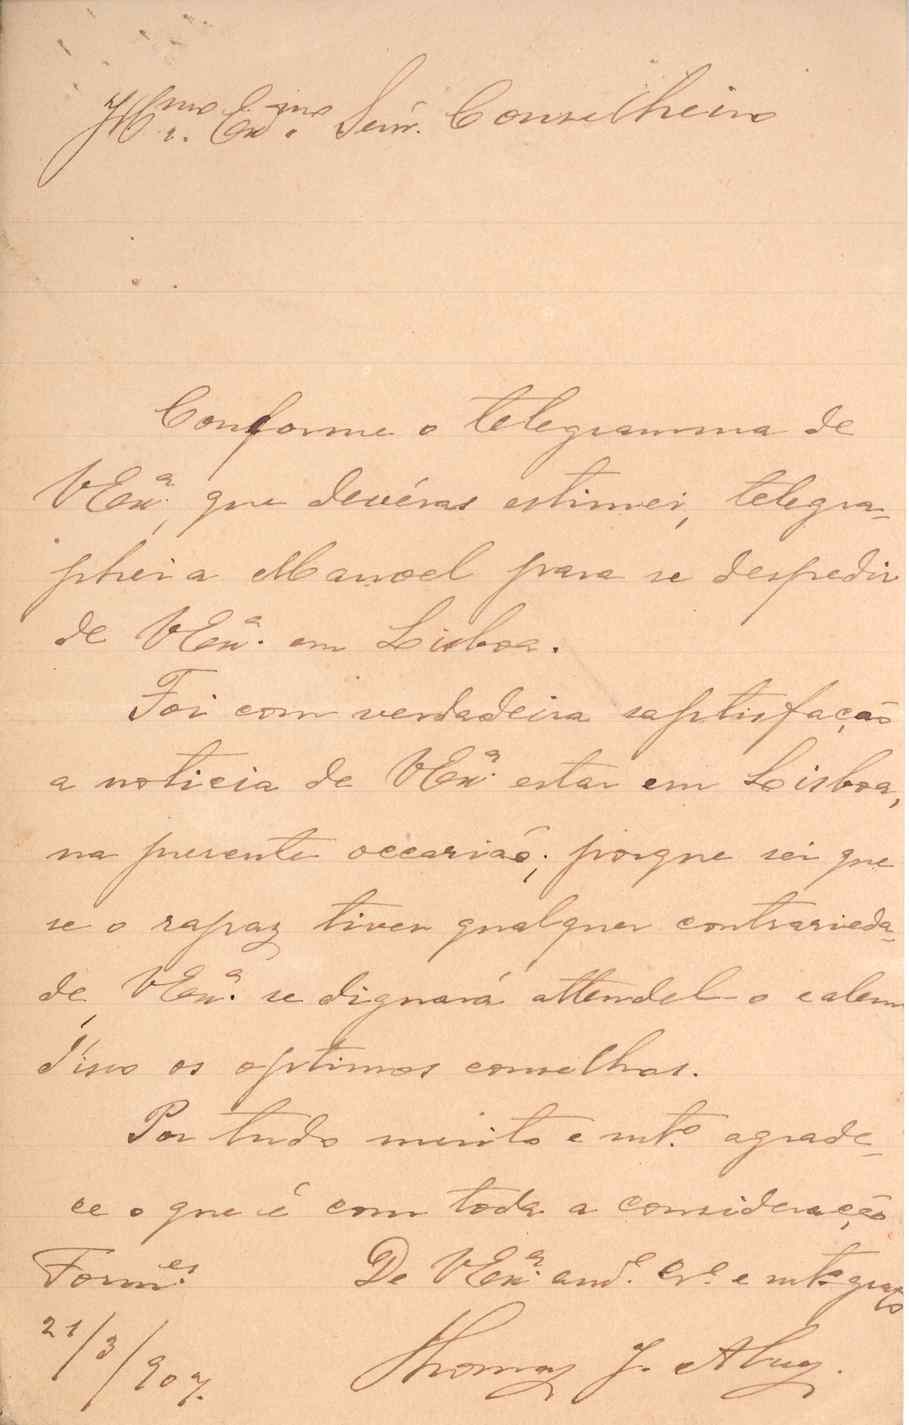 Ill.mo Ex.mo Senr. Conselheiro
Conforme o telegramma de
V Ex.a, que devéras estimei, telegra-
phei a Manoel para se despedir
de V Ex.a em Lisboa.
Foi com verdadeira saptisfação
a noticia de V Ex.a estar em Lisboa,
na presente occarião; porque sei que
se o rapaz tiver qualquer contrarieda-
de, V Ex.a se dignará attendel-o e alem
d'isso os optimos conselhos.
Por tudo muito e mt.o agrade-
ce o que é com toda a consideração
Form.es De V Ex.a am.o Cr.o e mt.o grato
21/3/907. Thomaz J.